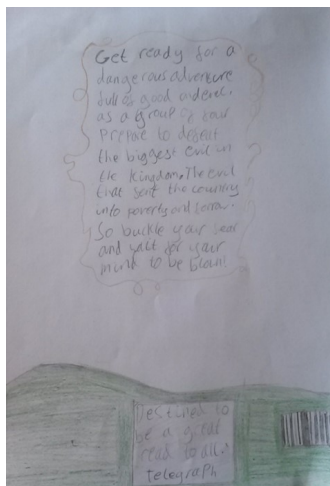 Get ready for a
dangerous adventure
full of good and evil.
as a group of four
Prepare to defeat
the biggest evil in
the Kingdom. The evil
that sent the country
into poverty and terror.
So buckle your seat
and wait for your
mind to be blown!
Destined to
be a great
read to all.
Telegraph